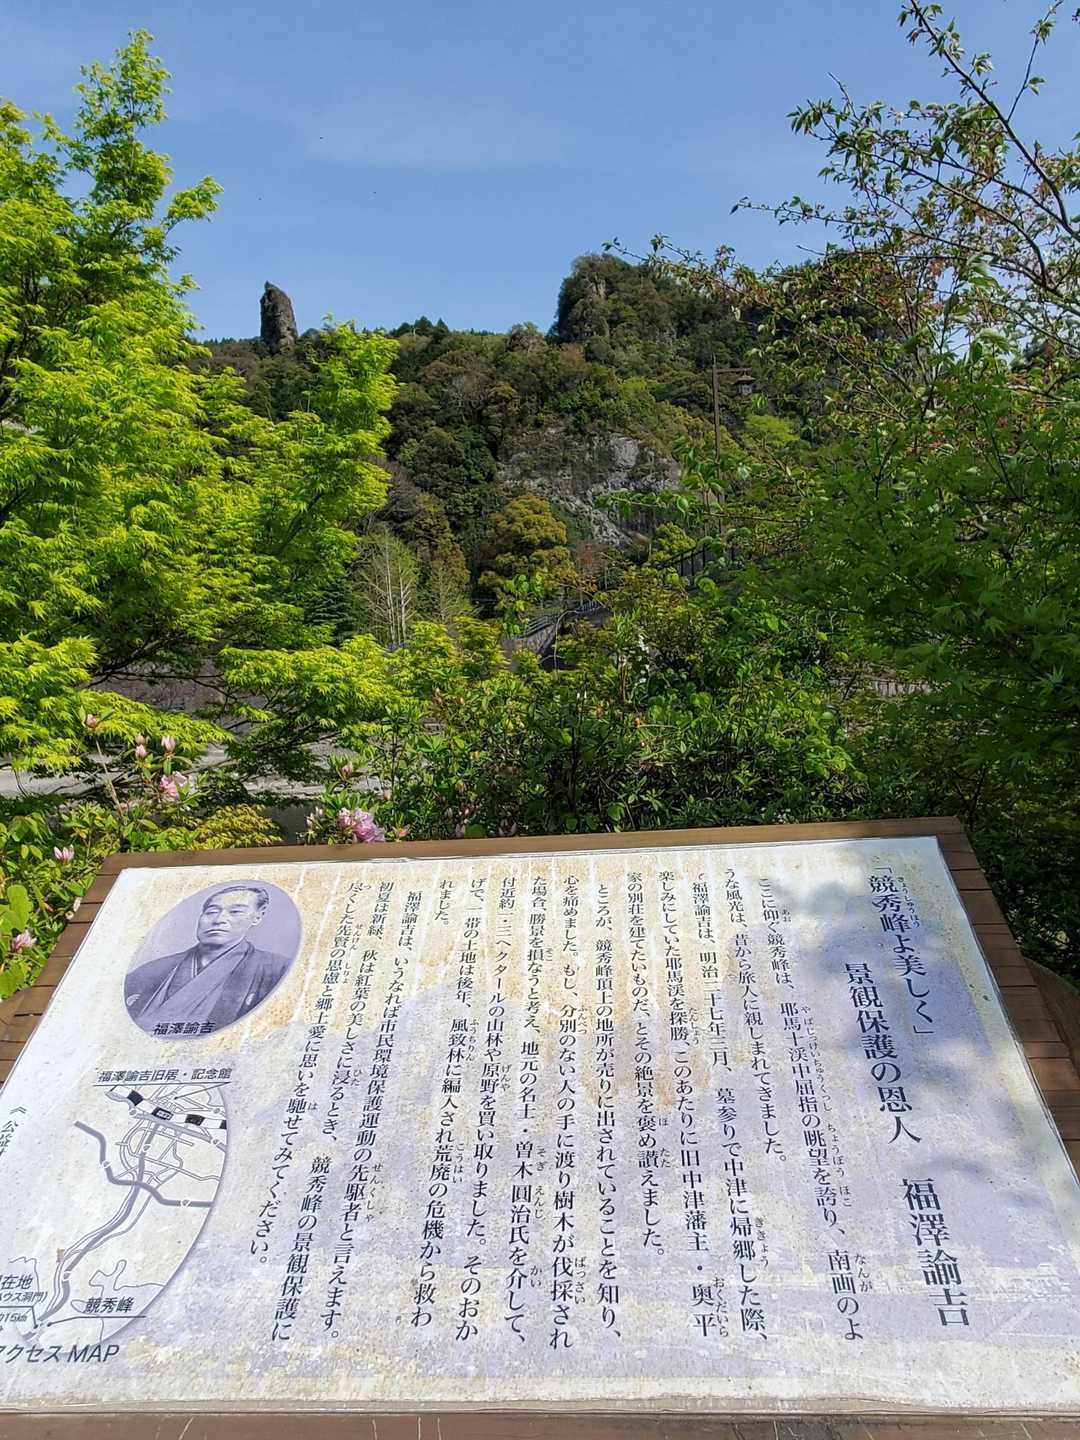 「競秀峰よ美しく」
景観保護の恩人 福澤諭吉
ここに仰ぐ競秀峰は、耶馬十渓中屈指の眺望を誇り、南画のよ
うな風光は、昔から旅人に親しまれてきました。
福澤諭吉は、明治二十七年三月、墓参りで中津に帰郷した際、
楽しみにしていた耶馬渓を探勝、このあたりに旧中津藩主・奥平
家の別荘を建てたいものだ、とその絶景を褒め讃えました。
ところが、競秀峰頂上の地所が売りに出されていることを知り、
心を痛めました。もし、分別のない人の手に渡り樹木が伐採され
た場合、勝景を損なうと考え、地元の名士・曽木圓治氏を介して、
付近約一・三ヘクタールの山林や原野を買い取りました。そのおか
げで、一帯の土地は後年、風致林に編入され荒廃の危機から救わ
れました。
福澤諭吉は、いうなれば市民環境保護運動の先駆者と言えます。
初夏は新緑、秋は紅葉の美しさに浸るとき、競秀峰の景観保護に
尽くした先賢の思慮と郷土愛に思いを馳せてみてください。
福澤諭吉
福澤諭吉旧居・記念館
在地
ハウス洞門)
競秀峰
アクセスMAP